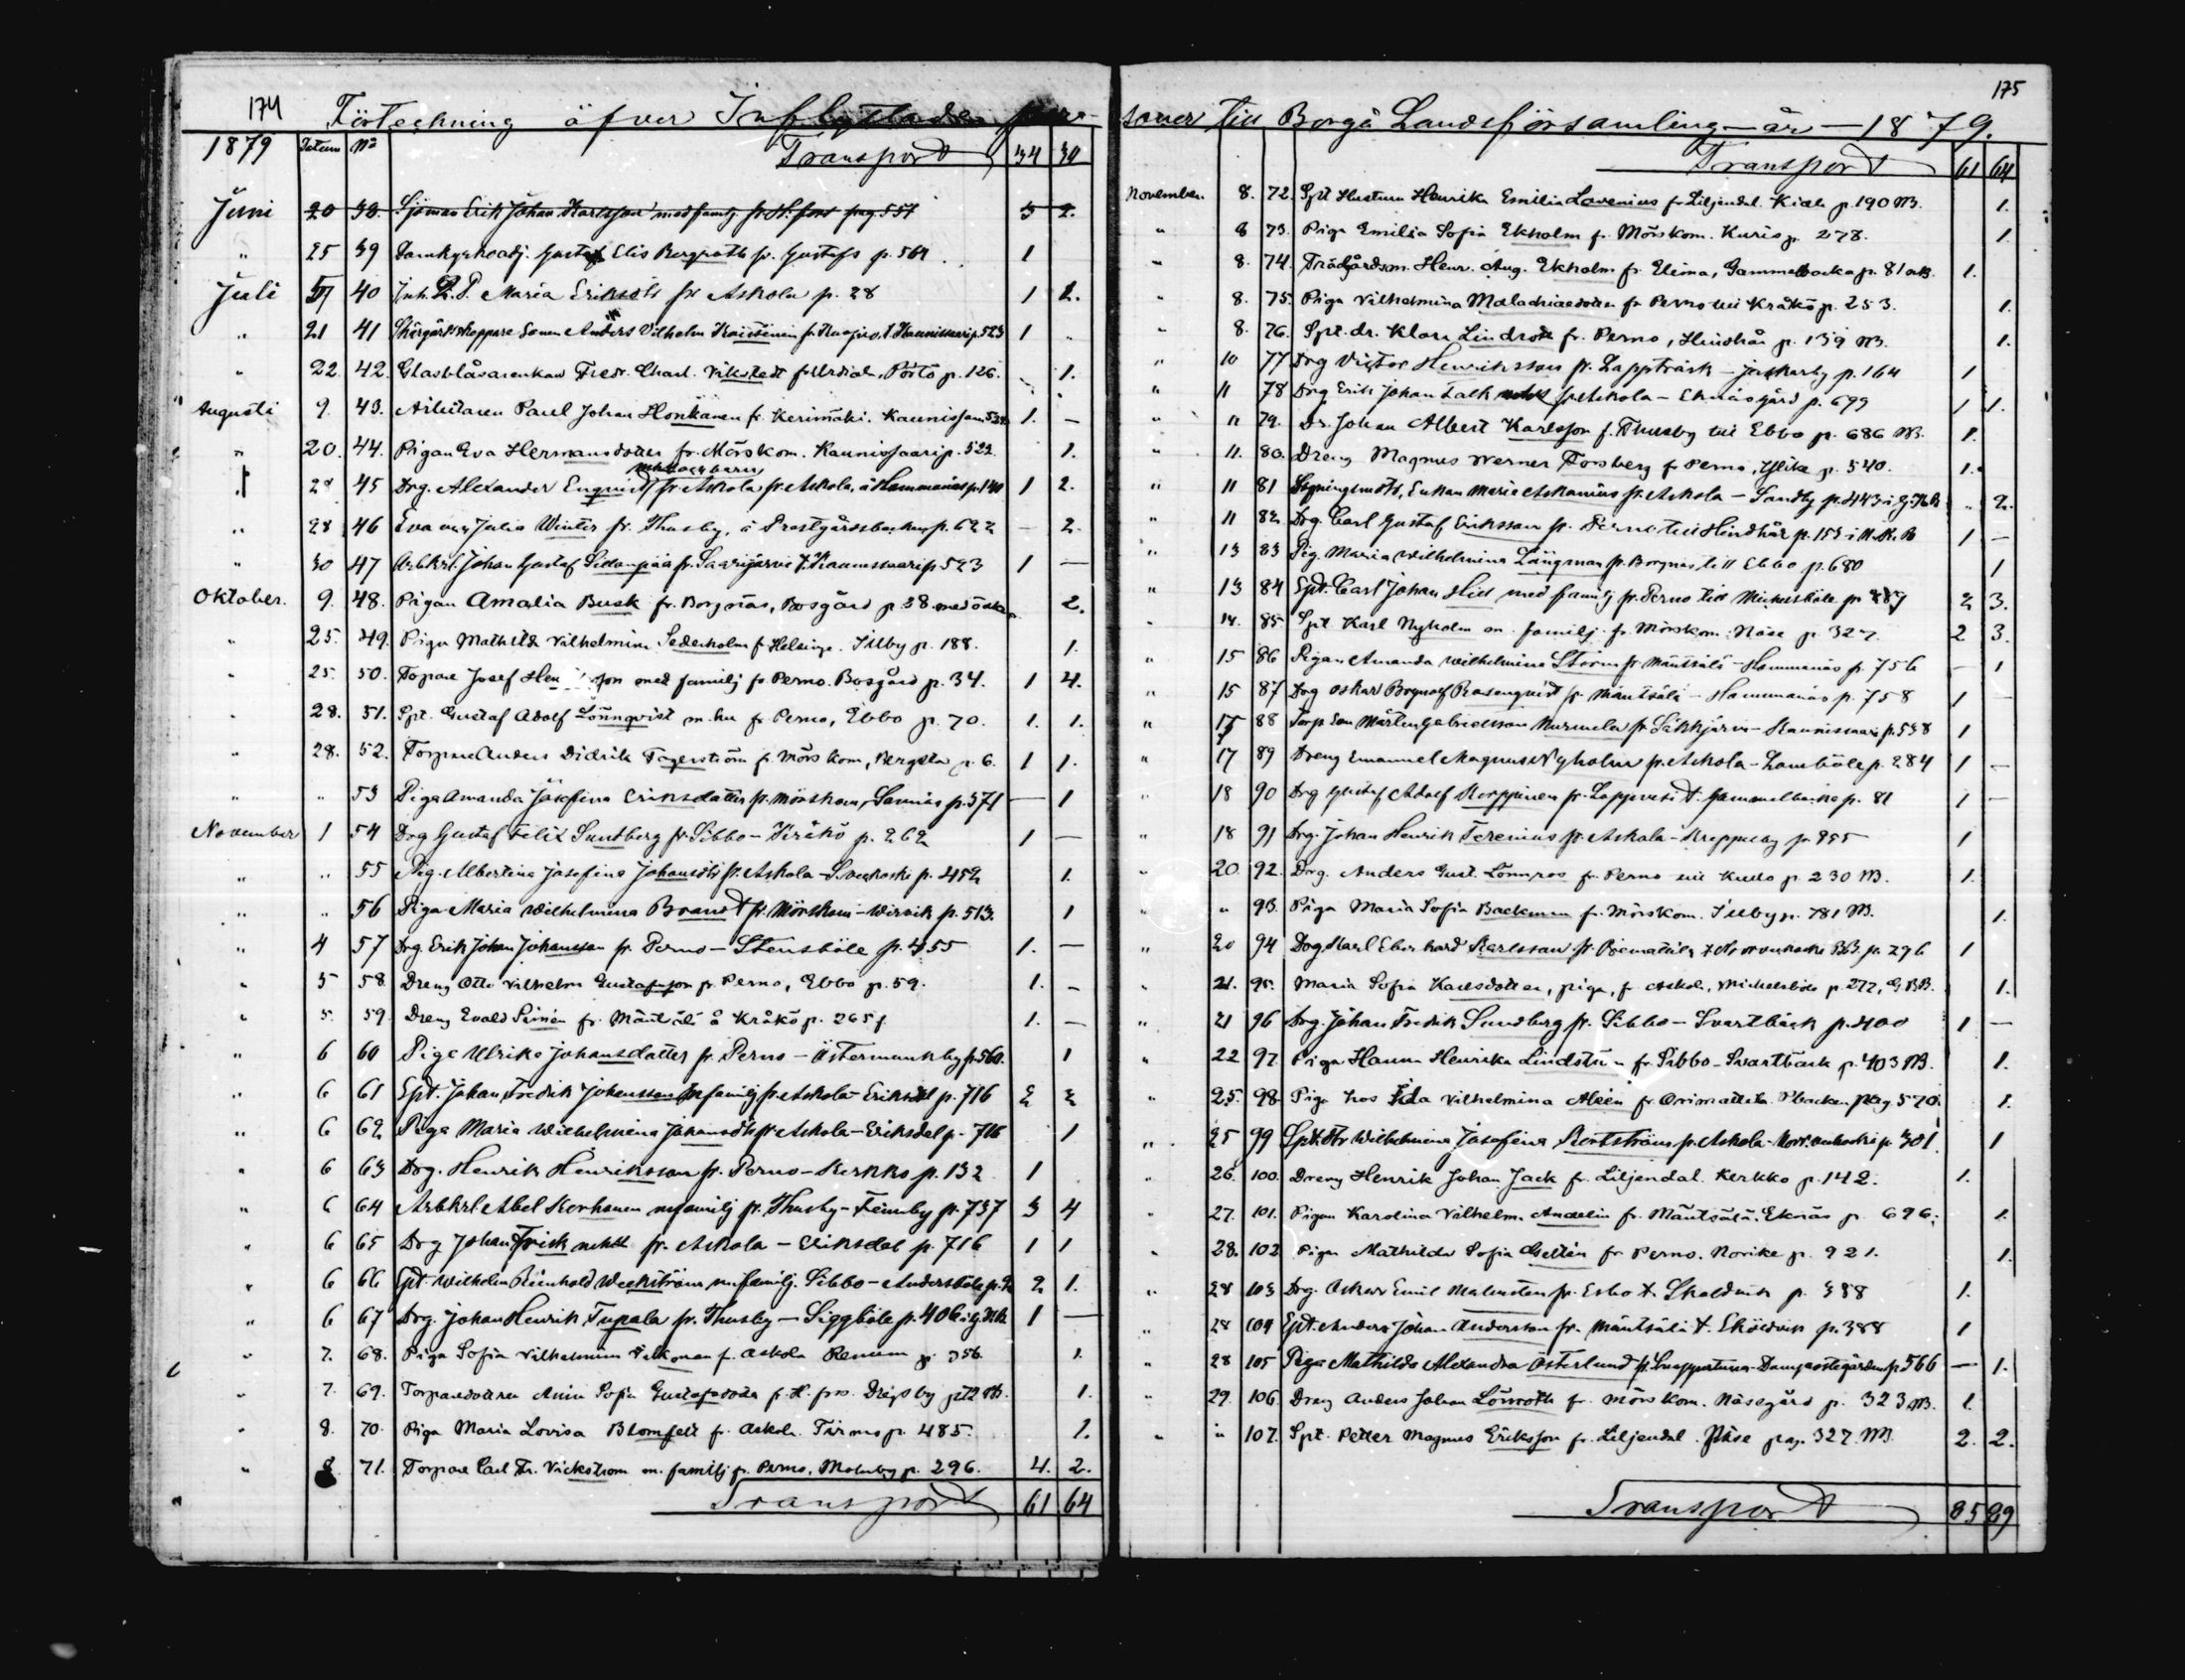 174
Förteckning öfver Inflyttade per-
1879 Datum No Transport 34 30
Juni 20 38. Sjöman Erik Johan Karlsson med familj fr. H:fors pag. 557 3 2.
" 25 39 Domkyrkoadj. Gustaf Elis Bergroth fr. Gustafs p. 564. 1
Juli 40 Inh. Maria Eriksdtr fr Askola p. 28 1 2.
" 21 41 Skärgårdskeppare Sonen Anders Vilhelm fr. Kuopio, t. Kaunissaari p. 523 1 "
" 22. 42. Glasblåsarenkan Fredr. Charl. Vikstedt fr. Urdiala, Pörtö p. 126. 1.
Augusti 9. 43. Arbetaren Paul Johan Honkanen fr. Kerimäki. Kaunissari 524 1. —
" 20. 44. Pigan Eva Hermansdotter fr. Mörskom. Kaunissaari p. 522. 1.
" 28 45 Drg. Alexander Enqvist fr Askola fr. Askola, å Hammars p. 140 1 2.
" 28 46 Eva Julia Winter fr. Thusby, å Prestgårdsbacken p. 622 — 2.
" 30 47 Arbkrl. Johan Gustaf Sidanpää fr. Saarijärvi t. Kaunissaari p. 523 1 —
Oktober. 9. 48. Pigan Amalia Busk fr. Borgnäs, Bosgård p. 38 med 2.
" 25. 49. Piga Mathilda Vilhelmina Sederholm f. Helsinge. Illby p. 188. 1.
" 25. 50. Torpare Josef son med familj fr Perno. Bosgård p. 34. 1 4.
" 28. 51. Spt. Gustaf Adolf Lönnqvist m. hu fr. Perno, Ebbo p. 70. 1. 1.
" 28. 52. Torpare Anders Didrik Fagerström fr. Mörskom, Bergsta p. 6. 1 1.
" " 53 Piga Amanda Josefina Eriksdotter fr. Mörskom, Sannäs p. 371 — 1
November 1 54 Drg Gustaf Felix Sundberg fr Sibbo - Kråkö p. 262 1 —
" " 55 Pig. Albertina Josefina Johansdtr fr. Askola - p. 452 1.
" " 56 Piga Maria Wilhelmina Brandt fr. Mörskom - Wirvik p. 513. 1
" 4 57 Drg. Erik Johan Johansson fr. Perno - Stensböle p. 455 1. —
" 5 58. Dreng Otto Vilhelm Gustafsson fr. Perno, Ebbo p. 59. 1. —
" 5. 59. Dreng Evald Simén fr. Mäntsälä å Kråkö p. 265 f. 1. —
" 6 60 Piga Ulrika Johansdotter fr. Perno - Östermunkby p. 560. 1
" 6 61 Spt. Johan Fredrik Johansson m familj fr. Askola - Eriksdal p. 716 2 2
" 6 62 Piga Maria Wilhelmina Johansdtr fr Askola - Eriksdal p. 716 1
" 6 63 Drg. Henrik Henriksson fr. Perno - Kerkko p. 132 1
" 6 64 Arbkrl. Abel Korhonen m familj fr. Thusby - Temby p. 737 3 4
" 6 65 Drg Johan Frisk m hu fr. Askola - Eriksdal p. 716 1 1
" 6 66 Spt. Wilhelm Reinhold Weckström m. familj. Sibbo - Andersböle p. 2 1.
" 6 67 Drg. Johan Henrik Tupala fr. Thusby - Siggböle p. 406 i 1 —
" 7. 68. Piga Sofia Vilhelmina Valkonen fr. Askola Renum p. 356. 1.
" 7. 69. Torparedottren Anna Sofia Gustafsdotter fr. H. fors. Drägsby 1.
" 8. 70. Piga Maria Lovisa Blomfelt fr. Askola. Tirmo p. 485. 1.
" 8. 71. Torpare Carl Fr. Vickstrom m. familj fr. Perno, Molnby p. 296. 4. 2.
Transport 61 64
175
soner till Borgå Landsförsamling – år – 1879.
Transport 61 64
November. 8. 72. Spt Hustrun Henrika Emilia Lovenius fr Liljendal. Kiala p. 190 NB. 1.
" 8 73. Piga Emilia Sofia Ekholm fr. Mörskom. Kuris p. 278. 1.
" 8. 74. Trädgårdsm. Henr. Aug. Ekholm fr. Elima, Gammelbacka p. 81 NB. 1.
" 8. 75. Piga Vilhelmina Malachiasdotter fr Perno till Kråkö p. 253. 1.
" 8. 76. Spt. dr. Klara Lindroth fr. Perno, Hindhår p. 159 NB. 1.
" 10 77 Drg Victor Henriksson fr. Lappträsk - Jackarby p. 164 1
" 11 78 Drg Erik Johan Falk m hu fr Askola - Eknäs gård p. 699 1 1.
" 11 79. Dr. Johan Albert Karlsson f. Thusby till Ebbo p. 686 NB. 1.
" 11. 80. Dreng Magnus Werner Forsberg fr Perno, Ylike p. 540. 1.
" 11 81 Enkan Maria Askanius fr. Askola - Sandby p. 443 i 2.
" 11 82. Drg. Carl Gustaf Eriksson fr. Perno till Hindhår p. 153 i N.K.B 1 —
" 13 83 Pig. Maria Wilhelmina Längman fr. Borgnäs till Ebbo p. 680 1
" 13 84 Spt. Carl Johan Hid med familj fr. Perno till Mickelsböle p. 2 3.
" 14. 85. Spt Karl Nyholm m familj fr. Mörskom. Näse p. 327. 2 3.
" 15 86 Pigan Amanda Wilhelmina Storm fr Mäntsälä - Hammars p. 756 — 1
" 15 87 Drg Oskar Brynolf Rosenqvist fr Mäntsälä - Hammars p. 758 1 —
" 17 88 Torp. Son Mårten Gabrielsson Nurmela fr Säkkjärvi - Kaunissaari p. 538 1
" 17 89 Dreng Emanuel Magnus Nyholm fr. Askola - Lamböle p. 284 1 —
" 18 90 Drg Gustaf Adolf Korppinen fr. Lappvesi t. Gammelbacka p. 81 1 —
" 18 91 Drg. Johan Henrik Terenius fr. Askola - Kroppnäs p. 1
" 20. 92. Drg. Anders Gust. Lönnroos fr. Perno till Kullo p 230 NB. 1.
" " 93. Piga Maria Sofia Backman fr. Mörskom. Illby p. 781 NB. 1.
" 20 94 Drg Karl Eberhard Karlsson fr. p. 296 1
" 21. 95. Maria Sofia Karlsdotter, piga, fr Askola, Mickelsböle p. 272, 1.
" 21 96 Drg. Johan Fredrik Sundberg fr. Sibbo - Svartbäck p. 400 1 —
" 22 97. Piga Hanna Henrika Lindström fr. Sibbo - Svartbäck p. 403 NB. 1.
" 25. 98. Piga hos Ida Vilhelmina Alén fr. Orimattila. pag 570. 1.
" 25 99 Wilhelmina Josefina fr. Askola - p. 301. 1
" 26. 100. Dreng Henrik Johan Jack fr. Liljendal. Kerkko p. 142. 1.
" 27. 101. Pigan Karolina Vilhelm. Andelin fr. Mäntsälä. Eknäs p. 696. 1.
" 28. 102 Piga Mathilda Sofia Gellin fr Perno. Norike p. 921. 1.
" 28 103 Drg. Oskar Emil Malmsten fr. Esbo t. Sköldvik p. 388 1.
" 28 104 Spt. Anders Johan Andersson fr. Mäntsälä t. Sköldvik p. 388 1
" 28 105 Piga Mathilda Alexandra Österlund fr. Snappertuna - Domprostgården p. 566 — 1.
" 29. 106. Dreng Anders Johan Lönroth fr. Mörskom. Näsegård p. 323 NB. 1.
" " 107. Spt. Petter Magnus Eriksson fr. Liljendal. Näse pag. 327. NB. 2. 2.
Transport 85 89